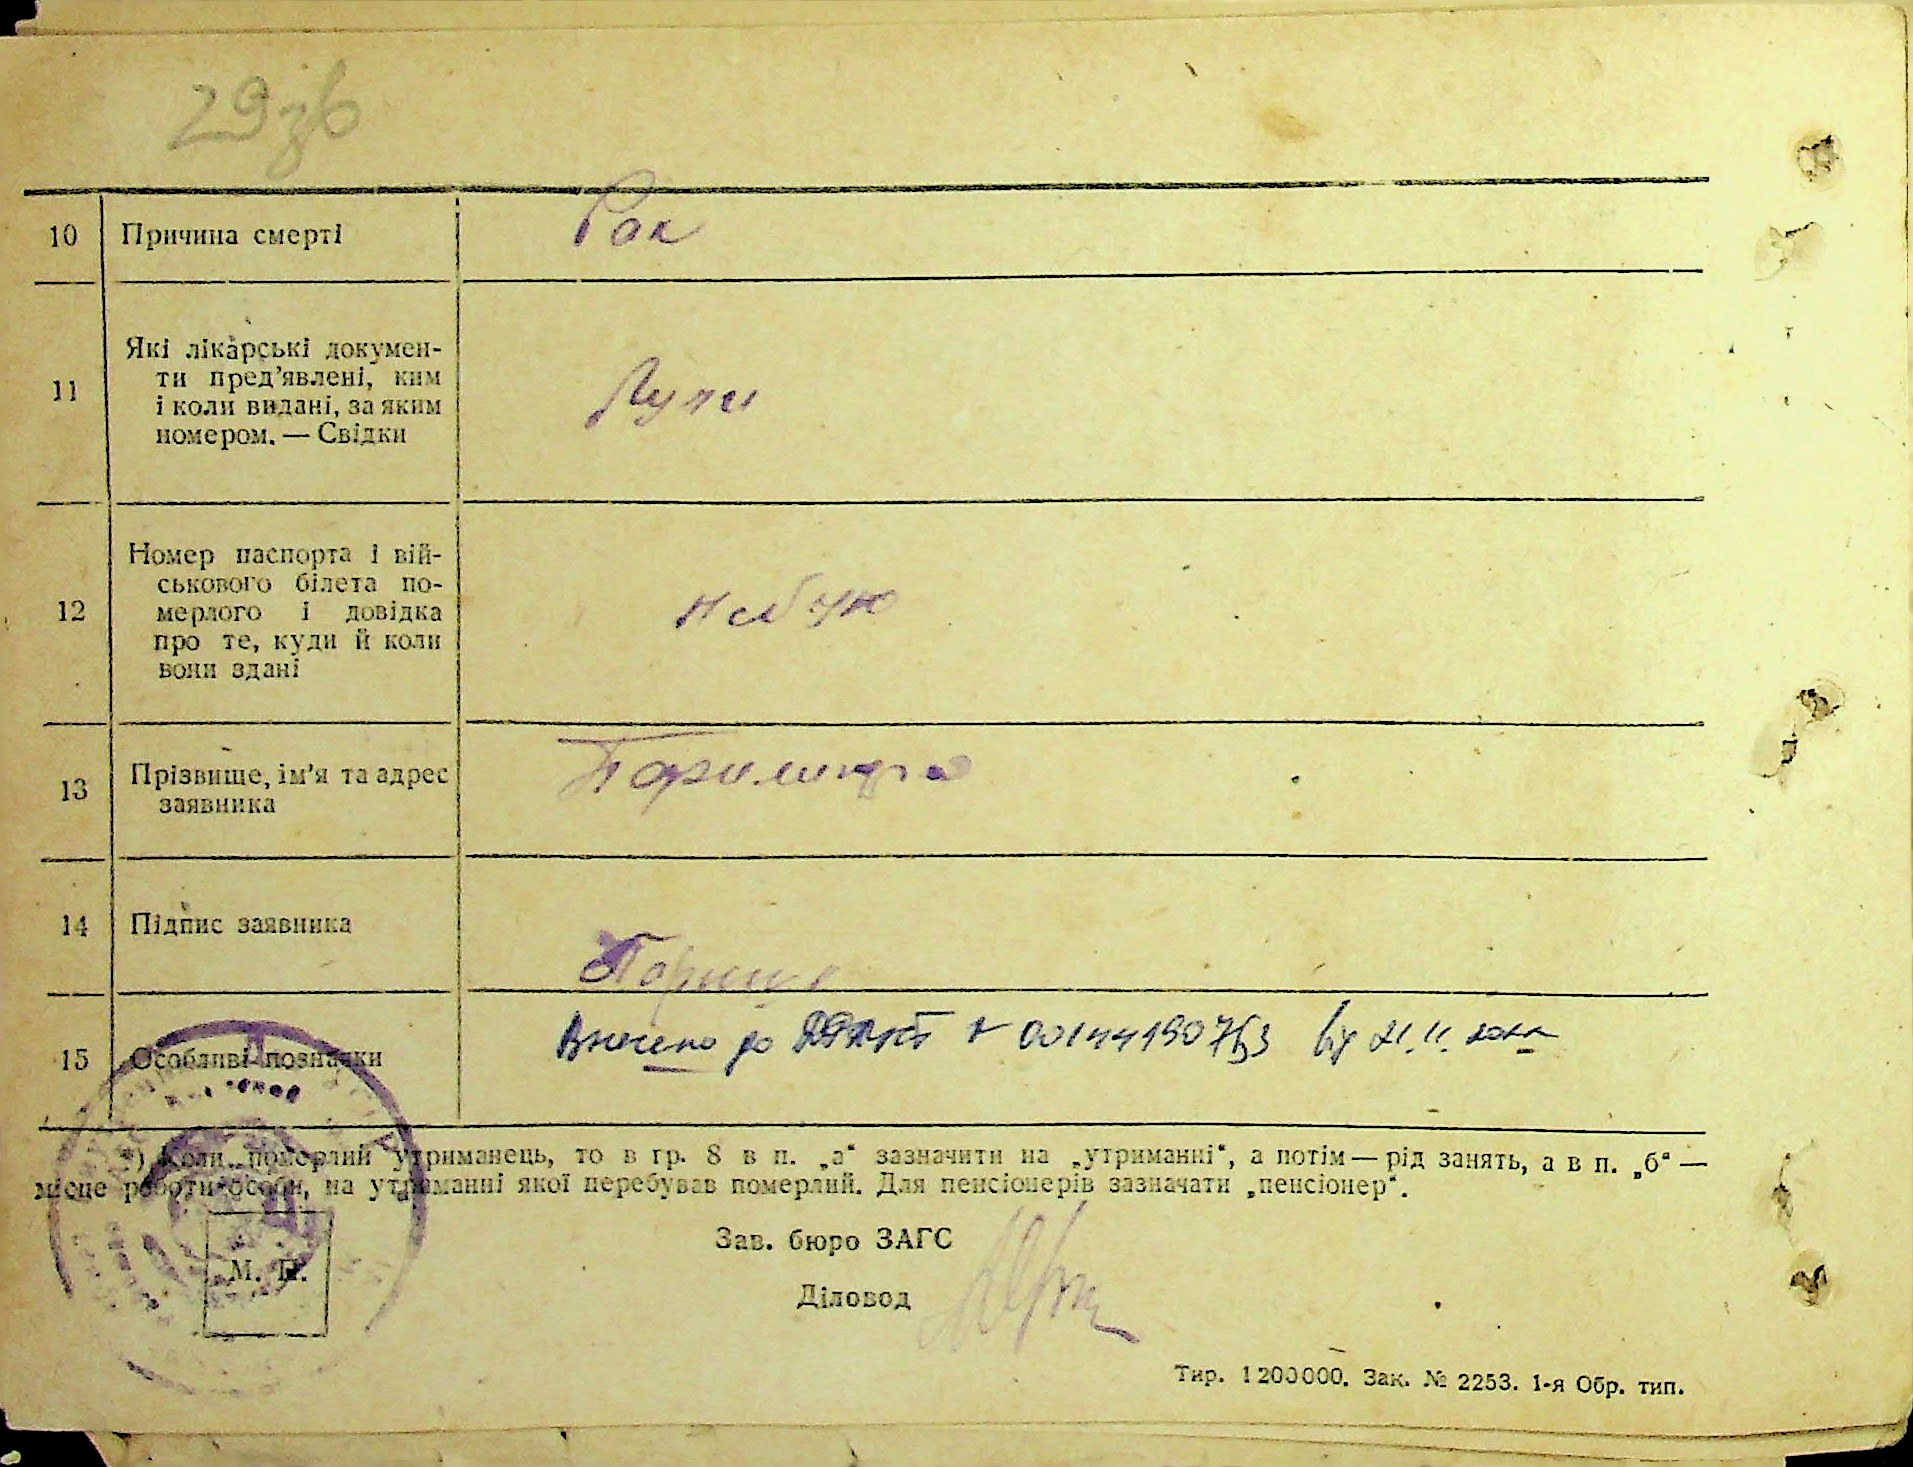 29зв
10 Причина смерті Рак
11 Які лікарські докумен-
ти пред'явлені, ким
і коли видані, за яким
номером. — Свідки
12 Номер паспорта і вій-
ськового білета по-
мерлого і довідка
про те, куди й коли
вони здані
13 Прізвище, ім'я та адрес
заявника
14 Підпис заявника
15 Особливі позначки Внесено до ДРАЦСГ № 00144190763 від 21.11.
*) Коли померлий утриманець, то в гр. 8 в п. „а“ зазначити на „утриманні“, а потім — рід занять, а в п. „б“ —
місце роботи особи, на утриманні якої перебував померлий. Для пенсіонерів зазначати „пенсіонер“.
Зав. бюро ЗАГС
М. П.
Діловод
Тир. 1200000. Зак. № 2253. 1-я Обр. тип.